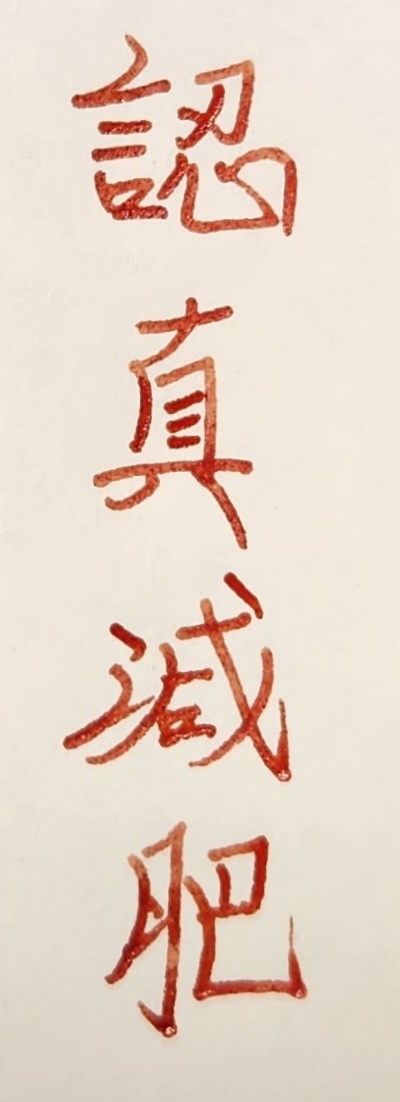 認真減肥